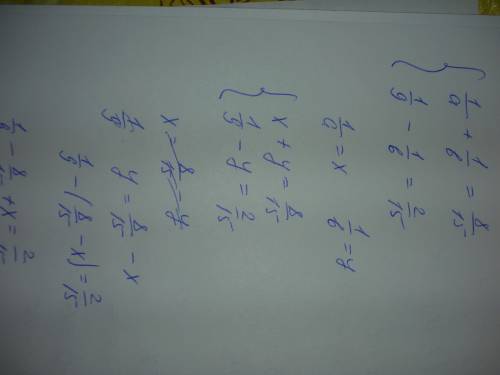 { 1/a + 1/b = 8/15
1/9 - 1/b = 2/15
1/a = x 1/b = y
{ x + y = 8/15
1/9 - y = 2/15
x = 8/15 - y
1/9 y = 8/15 - x
1/9 - (8/15 - x) = 2/15